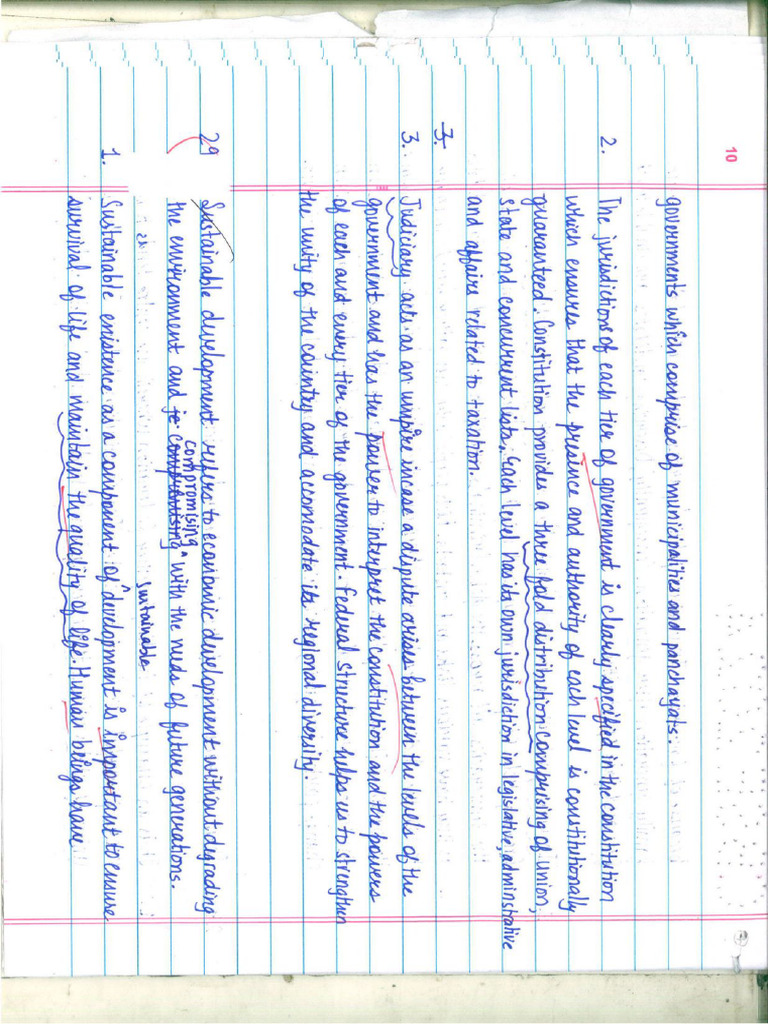 10
governments which comprise of municipalities and panchayats.
2. The jurisdictions of each tier of government is clearly specified in the constitution
which ensures that the presence and authority of each level is constitutionally
guaranteed. Constitution provides a three fold distribution comprising of union,
state and concurrent lists. Each level has its own jurisdiction in legislative, adminstrative
and affairs related to taxation.
3.
3. Judiciary acts as an umpire incase a dispute arises between the levels of the
government and has the power to interpret the constitution and the powers
of each and every tier of the government. Federal structure helps us to strengthen
the unity of the country and accomodate its regional diversity.
29 Sustainable development refers to economic development without degrading
compromising
the environment and with the needs of future generations.
sustainable
1. Sustainable existence as a component of ^ development is important to ensure
survival of life and maintain the quality of life. Human beings have